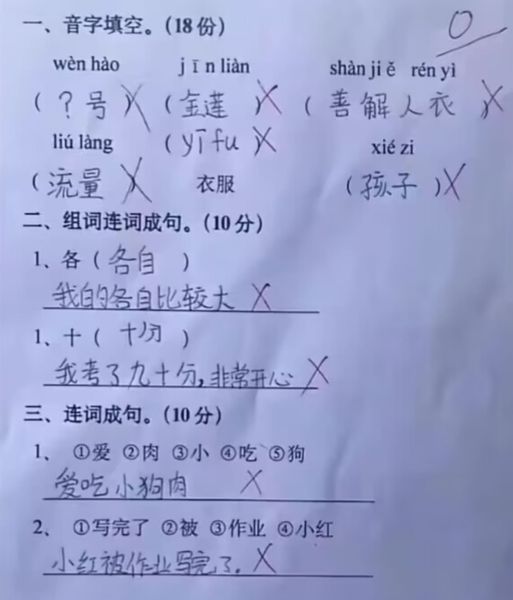 一、音字填空。（18份）
0
wèn hào jīn liàn shàn jiě rén yì
（？号） （金莲） （善解人衣）
liú làng （yī fu） xié zi
（流量） 衣服 （孩子）
二、组词连词成句。（10分）
1、各（各自）
我的各自比较大
1、十（十分）
我考了九十分,非常开心
三、连词成句。（10分）
1、 ①爱 ②肉 ③小 ④吃 ⑤狗
爱吃小狗肉
2、 ①写完了 ②被 ③作业 ④小红
小红被作业写完了.